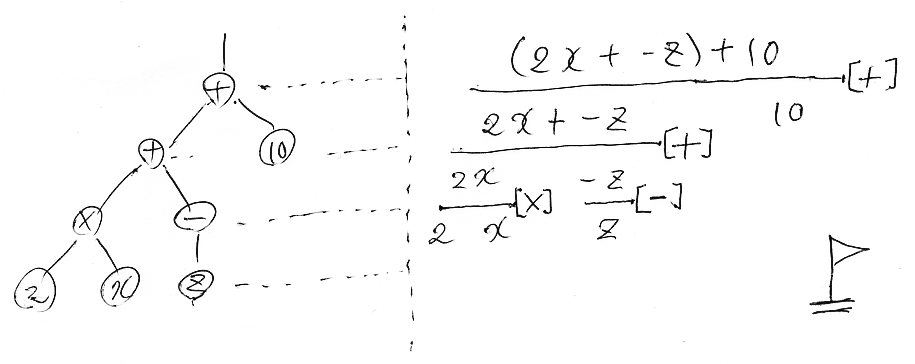 +
+ 10
× −
2 x z
(2x + -z) + 10
[+]
2x + -z 10
[+]
2x [×] -z [-]
2 x z